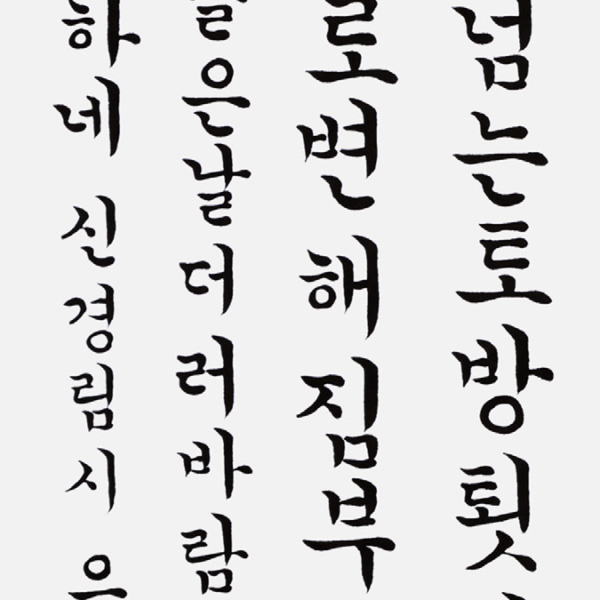 넘는토방툇
로변해짐부
늘은날더러바람
하네 신경림시